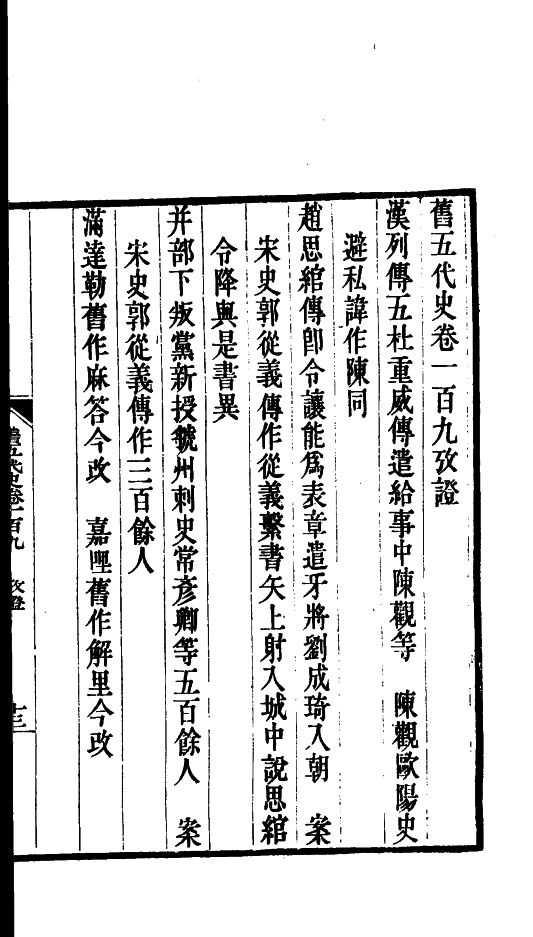 舊五代史卷一百九攷證
漢列傳五杜重威傳遣給事中陳觀等　陳觀歐陽史
避私諱作陳同
趙思綰傳卽令讓能爲表章遣牙將劉成琦入朝　案
宋史郭從義傳作從義繫書矢上射入城中說思綰
令降與是書異
并部下叛黨新授虢州刺史常彥卿等五百餘人　案
宋史郭從義傳作三百餘人
滿達勒舊作麻答今改　嘉哩舊作解里今改
舊五代史卷一百九　攷證
十三